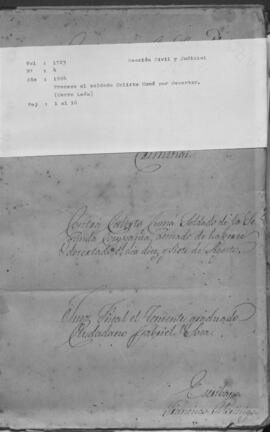 Vol : 1723 Sección Civil y Judicial
Nº : 4
Año : 1864
Proceso al soldado Calixto Cuná por desertar.
(Cerro León)
Pag : 1 al 16
Criminal.
Contra Calixto Cuná Soldado de la Se
gunda Compañia, acusado de haverse
desertado el dia diez y siete de Agosto.
Juez Fiscal el Teniente graduado
Ciudadano Gabriel
Escribano
Francisco